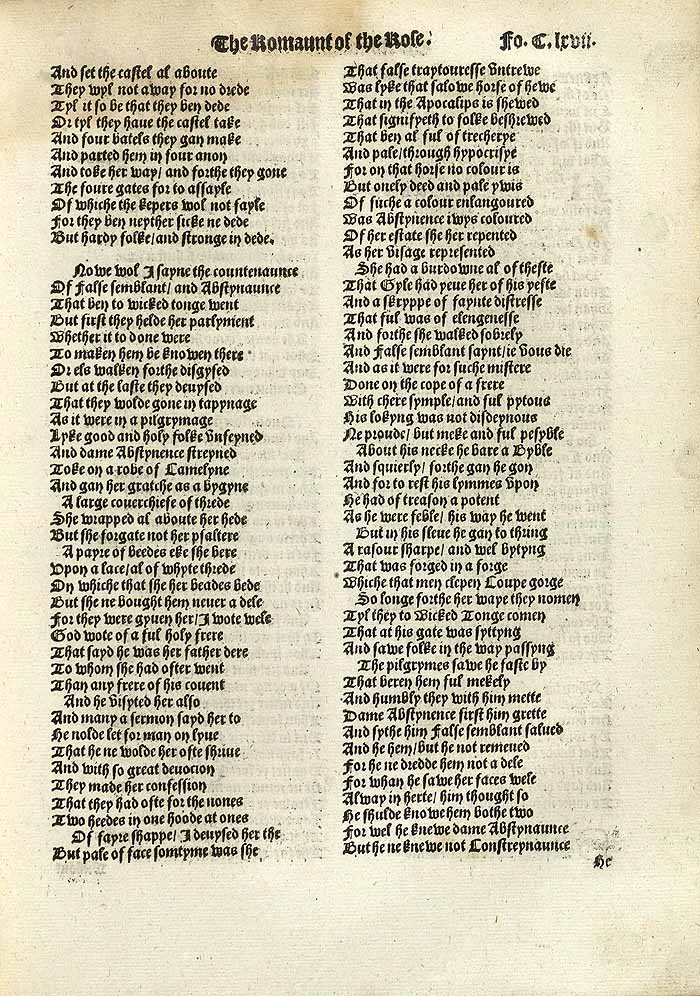 The Romaunt of the Rose.
Fo. C. lxvii.
And set the castel al aboute
They wyl not away for no drede
Tyl it so be that they ben dede
Or tyl they haue the castel take
And four batels they gan make
And parted hem in four anon
And toke her way/ and forthe they gone
The foure gates for to assayle
Of whiche the kepers wol not fayle
For they ben neyther sicke ne dede
But hardy folke/and stronge in dede.
Nowe wol I sayne the countenaunce
Of False semblant/ and Abstynaunce
That ben to wicked tonge went
But first they helde her parlyment
Whether it to done were
To maken hem be knowen there
Or els walken forthe disgysed
But at the laste they deuysed
That they wolde gone in tapynage
As it were in a pilgrymage
Lyke good and holy folke vnfeyned
And dame Abstynence streyned
Toke on a robe of Camelyne
And gan her gratche as a bygyne
A large couerchiefe of threde
She wrapped al aboute her hede
But she forgate not her psaltere
A payre of beedes eke she bere
Vpon a lace/al of whyte threde
On whiche that she her beades bede
But she ne bought hem neuer a dele
For they were gyuen her/I wote wele
God wote of a ful holy frere
That sayd he was her father dere
To whom she had ofter went
Than any frere of his couent
And he visyted her also
And many a sermon sayd her to
He nolde let for man on lyue
That he ne wolde her ofte shriue
And with so great deuocion
They made her confession
That they had ofte for the nones
Two heedes in one hoode at ones
Of fayre shappe/ I deuysed her the
But pale of face somtyme was she
That false traytouresse vntrewe
Was lyke that salowe horse of hewe
That in the Apocalips is shewed
That signifyeth to folke beshrewed
That ben al ful of trecherye
And pale/through hypocrisye
For on that horse no colour is
But onely deed and pale ywis
Of suche a colour enlangoured
Was Abstynence iwys coloured
Of her estate she her repented
As her visage represented
She had a burdowne al of thefte
That Gyle had yeue her of his yefte
And a skryppe of faynte distresse
That ful was of elengenesse
And forthe she walked sobrely
And False semblant saynt/ie vous die
And as it were for suche mistere
Done on the cope of a frere
With chere symple/and ful pytous
His lokyng was not disdeynous
Ne proude/ but meke and ful pesyble
About his necke he bare a Byble
And squierly/ forthe gan he gon
And for to rest his lymmes vpon
He had of treason a potent
As he were feble/ his way he went
But in his sleue he gan to thring
A rasour sharpe/ and wel bytyng
That was forged in a forge
Whiche that men clepen Coupe gorge
So longe forthe her waye they nomen
Tyl they to Wicked Tonge comen
That at his gate was syttyng
And sawe folke in the way passyng
The pilgrymes sawe he faste by
That beren hem ful mekely
And humbly they with him mette
Dame Abstynence first him grette
And sythe him False semblant salued
And he hem/but he not remeued
For he ne dredde hem not a dele
For whan he sawe her faces wele
Alway in herte/ him thought so
He shulde knowe hem bothe two
For wel he knewe dame Abstynaunce
But he ne knewe not Constreynaunce
He